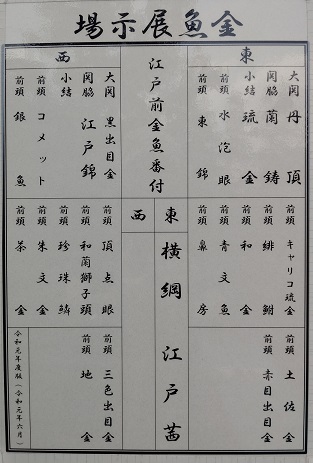 金魚展示場
東
大関 丹頂
関脇 蘭鋳
小結 琉金
前頭 水泡眼
前頭 東錦
前頭 キャリコ琉金
前頭 緋鮒
前頭 和金
前頭 青文魚
前頭 鼻房
前頭 土佐金
前頭 赤目出金
江戸前金魚番付
東
西
横綱 江戸茜
西
大関 黒出目金
関脇 江戸錦
小結
前頭 コメット
前頭 銀魚
前頭 頂点眼
前頭 和蘭獅子頭
前頭 珍珠鱗
前頭 朱文金
前頭 茶金
前頭 三色出目金
前頭 地金
令和元年度版（令和元年六月）